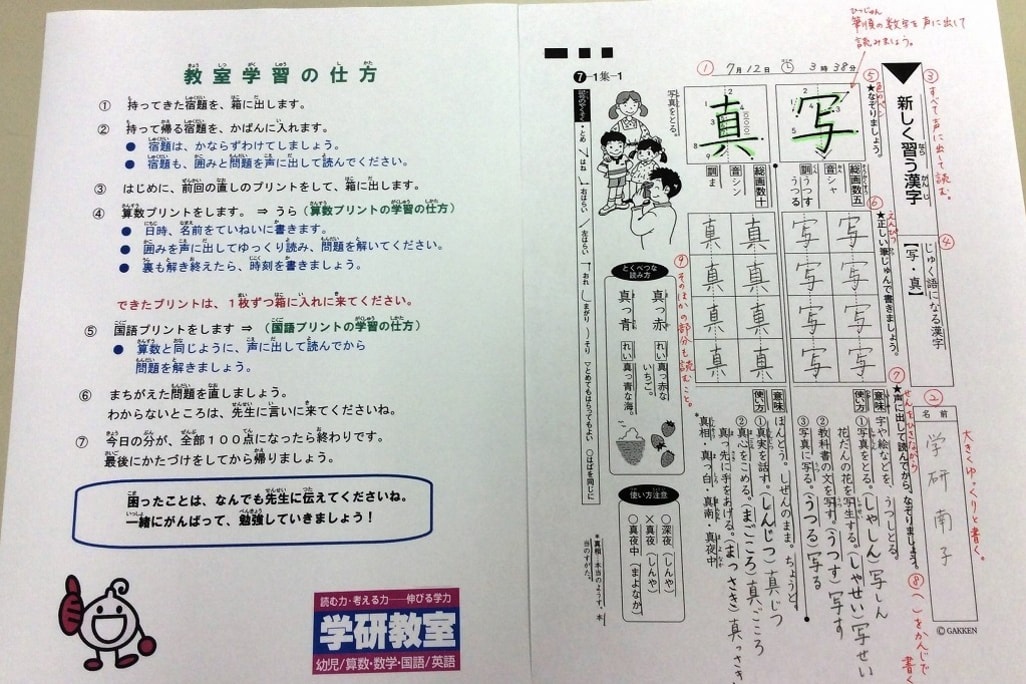 教室学習の仕方
① 持ってきた宿題を、箱に出します。
② 持って帰る宿題を、かばんに入れます。
● 宿題は、かならずわけてしましょう。
● 宿題も、囲みと問題を声に出して読んでください。
③ はじめに、前回の直しのプリントをして、箱に出します。
④ 算数プリントをします。 ⇒ うら（算数プリントの学習の仕方）
● 日時、名前をていねいに書きます。
● 囲みを声に出してゆっくり読み、問題を解いてください。
● 裏も解き終えたら、時刻を書きましょう。
できたプリントは、１枚ずつ箱に入れに来てください。
⑤ 国語プリントをします ⇒ （国語プリントの学習の仕方）
● 算数と同じように、声に出して読んでから
問題を解きましょう。
⑥ まちがえた問題を直しましょう。
わからないところは、先生に言いに来てくださいね。
⑦ 今日の分が、全部１００点になったら終わりです。
最後にかたづけをしてから帰りましょう。
困ったことは、なんでも先生に伝えてくださいね。
一緒にがんばって、勉強していきましょう！
読む力・考える力──伸びる学力
学研教室
幼児/算数・数学・国語/英語
筆順の数字を声に出して
読みましょう。
❼－1集－1
① 7月12日 土 3時38分
③ すべて声に出して読む。
新しく習う漢字
④
じゅく語になる漢字
【写・真】
②
名前
学研南子
大きくゆっくりと書く。
©GAKKEN
⑤
★なぞりましょう。
写
総画数五
音シャ
訓うつす
うつる
真
総画数十
音シン
訓ま
写真をとる。
⑥
★正しい筆じゅんで書きましょう。
写 写 写 写
写 写 写 写
真 真 真 真
真 真 真 真
⑦
★声に出して読んでから、なぞりましょう。
⑧（ ）をかんじで
書く
意味 字や絵などを、うつしとる。
使い方 ①写真をとる。（しゃしん）写しん
花だんの花を写生する。（しゃせい）写せい
②教科書の文を写す。（うつす）写す
③写真に写る。（うつる）写る
意味 ほんとう。しぜんのまま。ちょうど。
使い方 ①真実を話す。（しんじつ）真じつ
②真心をこめる。（まごころ）真ごころ
真っ先に手をあげる。（まっさき）真っさき
*真相 真っ白・真南・真夜中
⑨ そのほかの部分も読むこと。
とくべつな
読み方
真っ赤 れい 真っ赤な
いちご。
真っ青 れい 真っ青な海。
使い方注意
○深夜（しんや）
×真夜（しんや）
○真夜中（まよなか）
*真相…本当のようす。本
当のすがた。
記号のやくそく
・とめ
はね
右はらい
左はらい
おれ
まがり
そり
▽とめてもはらってもよい
○はばを同じに